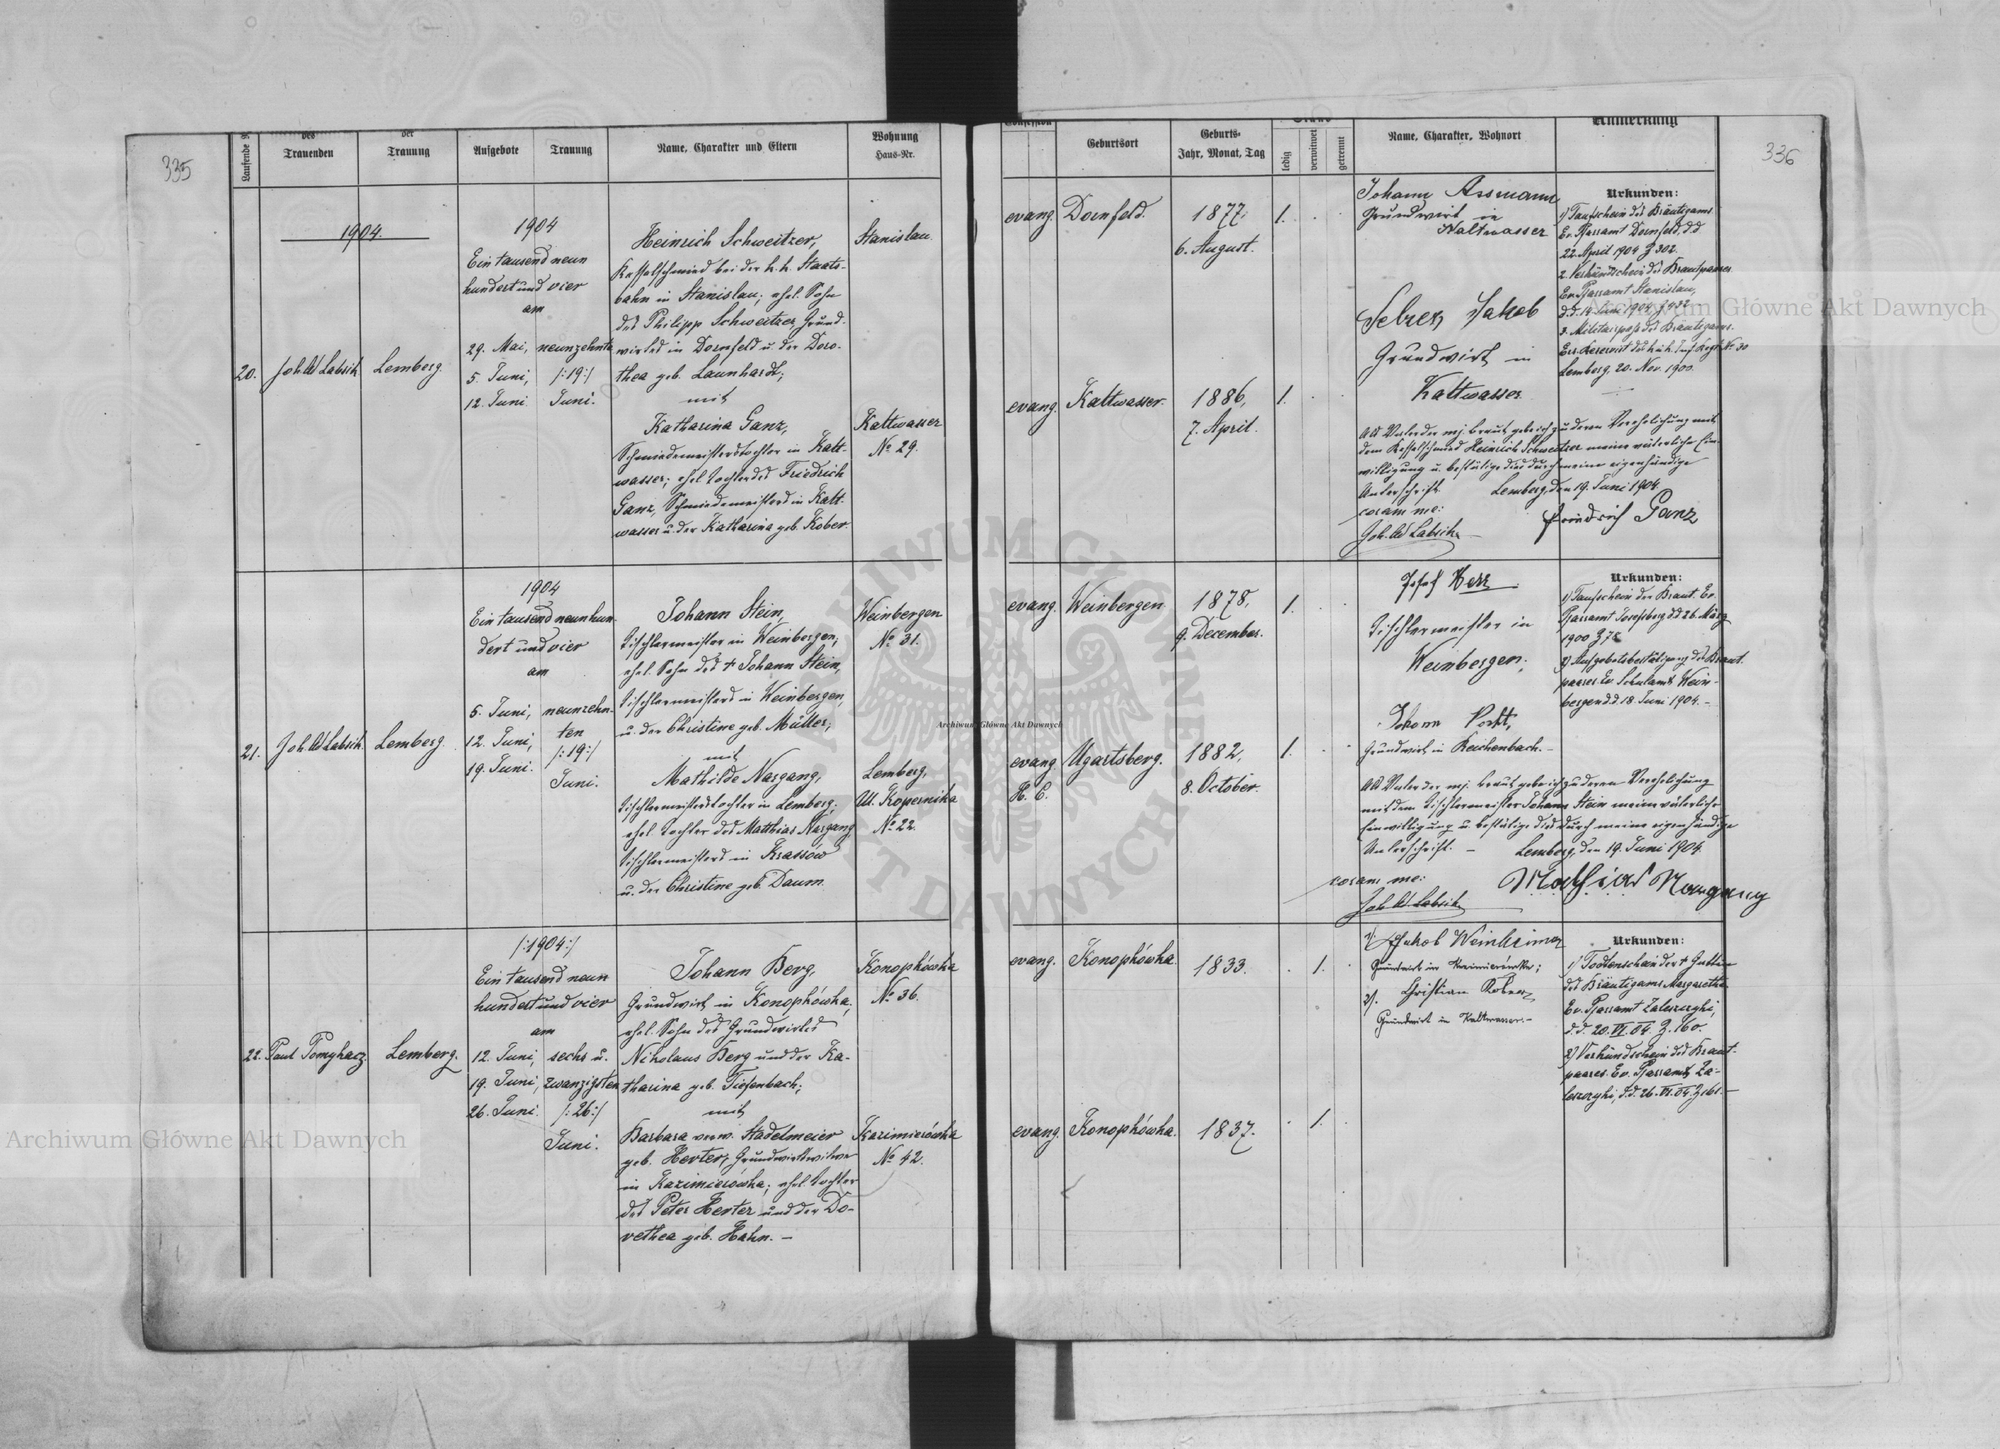 335
Laufende
des
Trauenden
der
Trauung
Aufgebote
Trauung
Name, Charakter und Eltern
Wohnung
Haus-Nr.
1904.
20.
Joh. Ad. Labsik
Lemberg.
1904
Ein tausend neun
hundert und vier
am
29. Mai, neunzehnte
5. Juni, /:19:/
12. Juni. Juni.
Heinrich Schweitzer,
Kesselschmied bei der k. k. Staats-
bahn in Stanislau; ehel. Sohn
des Philipp Schweitzer, Grund-
wirtes in Dornfeld u. der Doro-
thea geb. Launhardt;
mit
Katharina Ganz,
Schmiedemeisterstochter in Kalt-
wasser; ehel. Tochter des Friedrich
Ganz, Schmiedemeisters in Kalt-
wasser u. der Katharina geb. Kober
Stanislau.
Kaltwasser
No 29.
21.
Joh. Ad. Labsik
Lemberg.
1904
Ein tausend neunhun-
dert und vier
am
5. Juni, neunzehn-
12. Juni, ten
19. Juni. /:19:/
Juni.
Johann Stein,
Tischlermeister in Weinbergen;
ehel. Sohn des + Johann Stein,
Tischlermeisters in Weinbergen,
u. der Christine geb. Müller;
mit
Mathilde Nargang,
Tischlermeisterstochter in Lemberg;
ehel. Tochter des Matthias Nargang
Tischlermeisters in Krassów
u. der Christine geb. Daum.
Weinbergen
No 31.
Lemberg,
Ul. Kopernika
No 22.
22.
Paul Pomykacz
Lemberg.
/:1904:/
Ein tausend neun
hundert und vier
am
12. Juni, sechs u.
19. Juni, zwanzigsten
26. Juni. /:26:/
Juni.
Johann Berg,
Grundwirt in Konopkówka,
ehel. Sohn des Grundwirtes
Nikolaus Berg und der Ka-
tharina geb. Tiefenbach;
mit
Barbara verw. Stadelmeier
geb. Herter, Grundwirtswitwe
in Kazimierówka; ehel. Tochter
des Peter Herter und der Do-
rethea geb. Hahn. –
Konopkówka
No 36.
Kazimierówka
No 42.
336
Confession
Geburtsort
Geburts-
Jahr, Monat, Tag
Stand
ledig
verwitwet
getrennt
Name, Charakter, Wohnort
Anmerkung
evang.
Dornfeld.
1877.
6. August.
1.
Johann Assmann
Grundwirt in
Kaltwasser
Jakob
Grundwirt in
Kaltwasser
evang.
Kaltwasser.
1886,
7. April.
1.
Urkunden:
1) Taufschein des Bräutigams
Ev. Pfarramt Dornfeld dd
22. April 1904 Z 302.
2. Verkündschein des Brautpaares
Ev. Pfarramt Stanislau,
3. Militärpass des Bräutigams.
Lemberg, 20. Nov. 1900.
Als Vater der mj. Braut gebe ich zu deren Verehelichung mit
dem Kesselschmied Heinrich Schweitzer meine väterliche Ein-
willigung u. bestätige dies durch meine eigenhändige
Unterschrift. Lemberg, den 19. Juni 1904.
coram me:
Joh. Ad. Labsik
Friedrich Ganz
evang.
Weinbergen
1878,
9. December.
1.
Josef Herz
Tischlermeister in
Weinbergen;
Johann
Grundwirt in Reichenbach. –
evang
H. C.
Ugartsberg.
1882,
8. October.
1.
Urkunden:
1) Taufschein der Braut. Ev.
Pfarramt Josefsberg dd 26. März
1900
2) Aufgebotsbestätigung des Braut-
paares Ev. Schulamt Wein-
bergen d.d. 18. Juni 1904. –
Als Vater der mj. Braut gebe ich zu deren Verehelichung
mit dem Tischlermeister Johann Stein meine väterliche
Einwilligung u. bestätige dies durch meine eigenhändige
Unterschrift. – Lemberg, den 19. Juni 1904.
coram me:
Joh. Ad. Labsik
Mathias Nargang
evang.
Konopkówka.
1833.
1.
1) Jakob Weinheimer
Grundwirt in Kazimierówka;
2). Christian Kober,
Grundwirt in Kaltwasser. –
evang.
Konopkówka.
1837.
1.
Urkunden:
1) Todtenschein der + Gattin
des Bräutigams Margaretha
Ev. Pfarramt Zaleszczyki,
d.d. 20. VI. 04. Z. 160.
2) Verkündschein des Braut-
paares. Ev. Pfarramt Za-
leszczyki, d.d. 26. VI. 04. Z 161. –
Archiwum Główne Akt Dawnych
Archiwum Główne Akt Dawnych
Archiwum Główne Akt Dawnych
ARCHIWUM GŁÓWNE AKT DAWNYCH